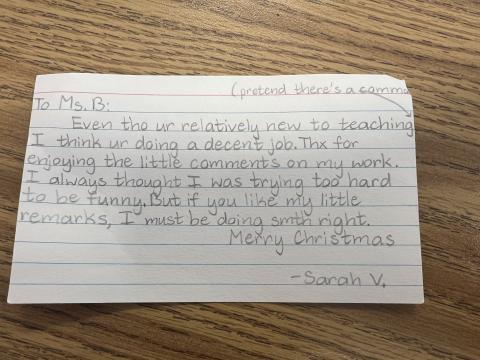 (pretend there's a comma
To Ms. B:
Even tho ur relatively new to teaching
I think ur doing a decent job. Thx for
enjoying the little comments on my work.
I always thought I was trying too hard
to be funny. But if you like my little
remarks, I must be doing smth right.
Merry Christmas
-Sarah V.